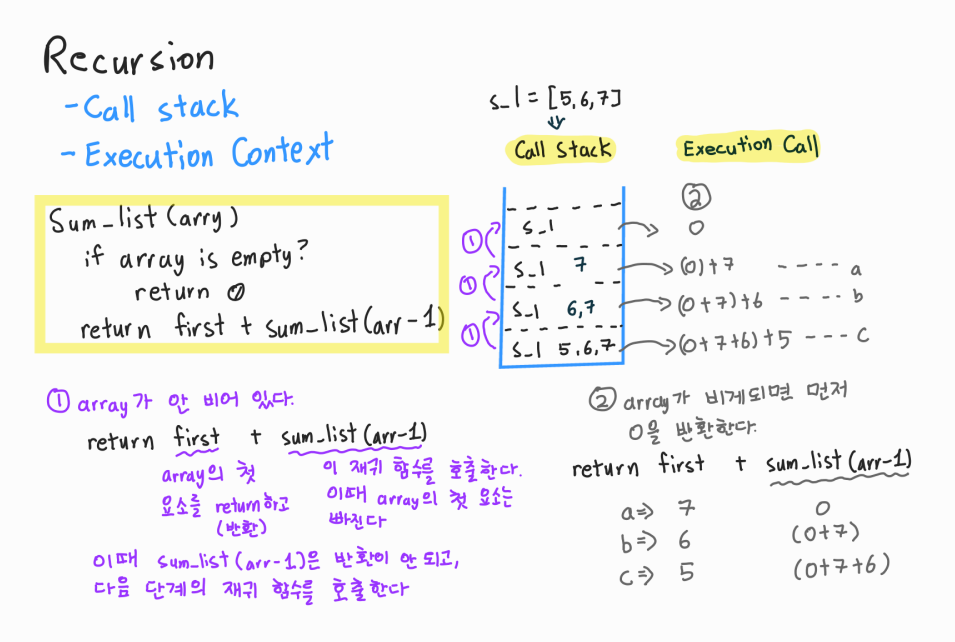 Recursion
- Call stack
- Execution Context
Sum_list(arry)
if array is empty?
return 0
return first + sum_list(arr-1)
s_l = [5,6,7]
Call Stack
Execution Call
②
① s_l → 0
① s_l 7 → (0)+7 ---- a
① s_l 6,7 → (0+7)+6 ---- b
s_l 5,6,7 → (0+7+6)+5 --- C
① array가 안 비어 있다.
return first + sum_list(arr-1)
array의 첫
요소를 return하고
(반환)
이 재귀 함수를 호출한다.
이때 array의 첫 요소는
빠진다
이때 sum_list(arr-1)은 반환이 안 되고,
다음 단계의 재귀 함수를 호출한다
② array가 비게되면 먼저
0을 반환한다.
return first + sum_list(arr-1)
a⇒ 7 0
b⇒ 6 (0+7)
c⇒ 5 (0+7+6)